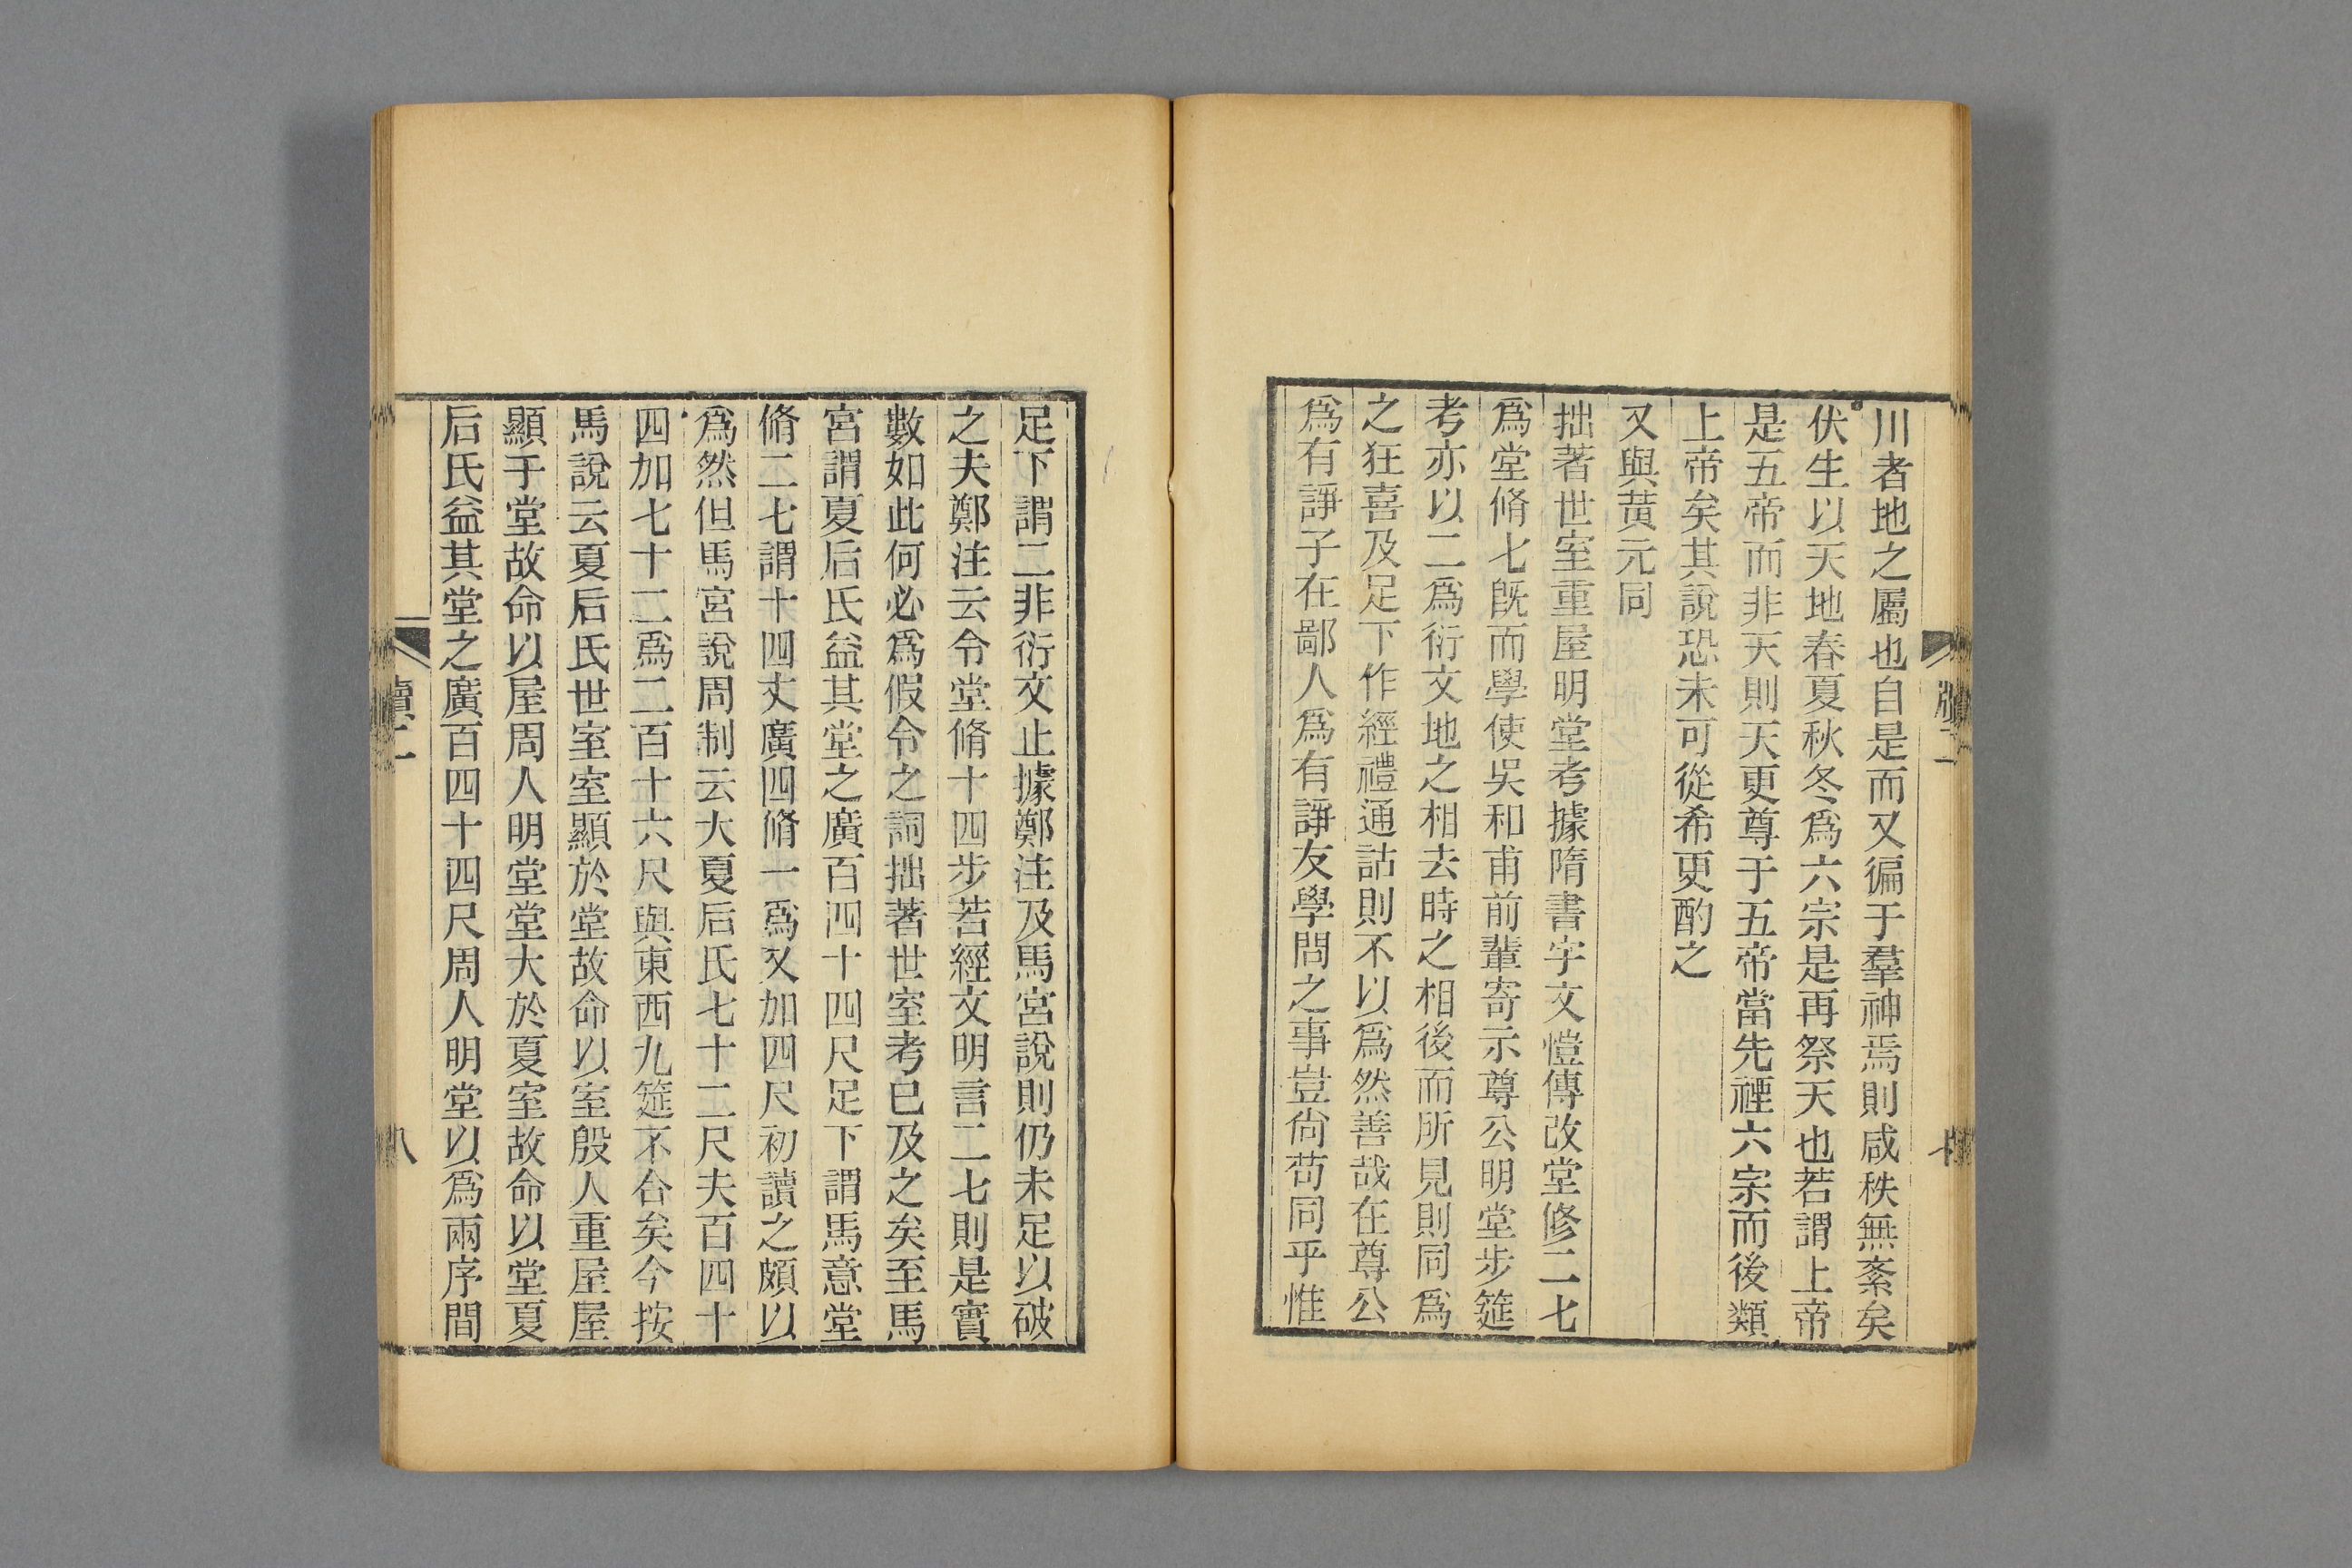 川者地之屬也自是而又徧于羣神焉則咸秩無紊矣
伏生以天地春夏秋冬爲六宗是再祭天也若謂上帝
是五帝而非天則天更尊于五帝當先禋六宗而後類
上帝矣其說恐未可從希更酌之
又與黄元同
拙著世室重屋明堂考據隋書宇文愷傳改堂修二七
爲堂脩七旣而學使吳和甫前輩寄示尊公明堂步筵
考亦以二爲衍文地之相去時之相後而所見則同爲
之狂喜及足下作經禮通詁則不以爲然善哉在尊公
爲有諍子在鄙人爲有諍友學問之事豈尙苟同乎惟
足下謂二非衍文止據鄭注及馬宮說則仍未足以破
之夫鄭注云令堂脩十四步若經文明言二七則是實
數如此何必爲假令之詞拙著世室考已及之矣至馬
宮謂夏后氏益其堂之廣百四十四尺足下謂馬意堂
脩二七謂十四丈廣四脩一爲又加四尺初讀之頗以
爲然但馬宮說周制云大夏后氏七十二尺夫百四十
四加七十二爲二百十六尺與東西九筵不合矣今按
馬說云夏后氏世室室顯於堂故命以室殷人重屋屋
顯于堂故命以屋周人明堂堂大於夏室故命以堂夏
后氏益其堂之廣百四十四尺周人明堂以爲兩序間
八